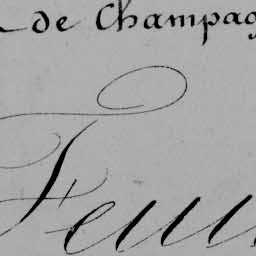 de Champag
Feui